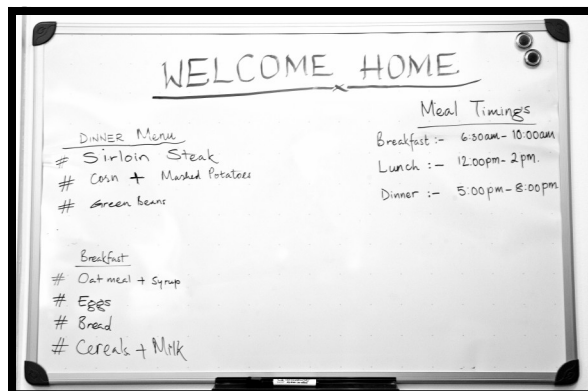 WELCOME HOME
DINNER Menu
# Sirloin Steak
# Corn + Mashed Potatoes
# Green Beans
Breakfast
# Oatmeal + Syrup
# Eggs
# Bread
# Cereals + Milk
Meal Timings
Breakfast :- 6:30am - 10:00am
Lunch :- 12:00pm - 2pm.
Dinner :- 5:00pm - 8:00pm